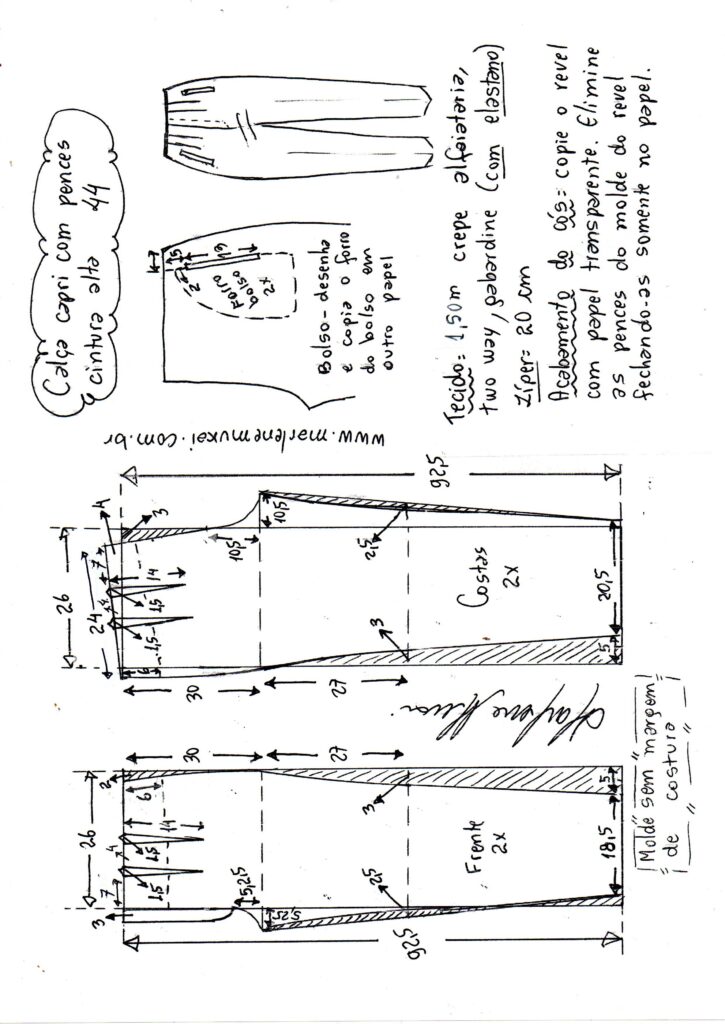 Calça capri com pences
cintura alta 44
1,5
2
19
Forro
bolso
2x
Bolso - desenha
e copia o forro
do bolso em
outro papel
Tecido = 1,50m crepe alfaiataria,
two way, gabardine (com elastano)
Zíper = 20 cm
Acabamento do cós = copie o revel
com papel transparente. Elimine
as pences do molde do revel
fechando-as somente no papel.
www.marlenemukai.com.br
26
24
7
4
4
3
14
1,5
1,5
6
30
27
10,5
10,5
2,5
3
92,5
Costas
2x
20,5
5
26
2
6
14
4
7
1,5
1,5
3
30
27
5,25
5,25
2,5
3
92,5
Frente
2x
18,5
5
Molde sem margem
de costura